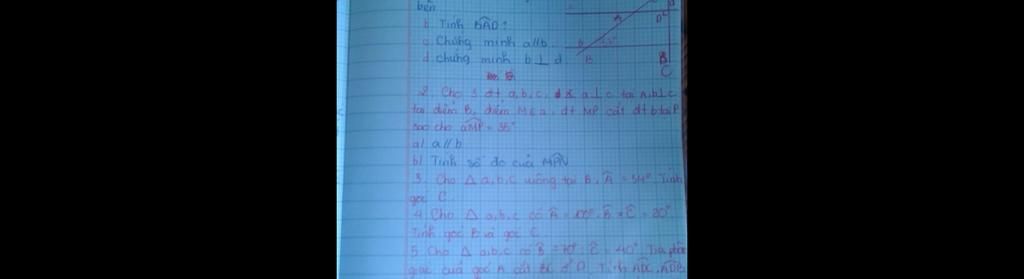 bên
b. Tính BAD?
c. Chứng minh a//b.
d. chứng minh b ⊥ d.
A
D
B
B
C
2. Cho 3 đt a, b, c, a ⊥ c tại A, b ⊥ c
tại điểm B, điểm M ∈ a, đt MP cắt đt b tại P
sao cho aMP = 35°
a/ a//b
b/ Tính số đo của MPN
3. Cho Δ a,b,c vuông tại B. Â = 34° Tính
góc C
4 Cho Δ a,b,c có Â = 100°, B̂ - Ĉ = 20°
Tính góc B và góc C
5. Cho Δ a,b,c có B̂ = 70°, Ĉ = 40°. Tia phân
giác của góc A cắt BC ở D. Tính ADC, ADB